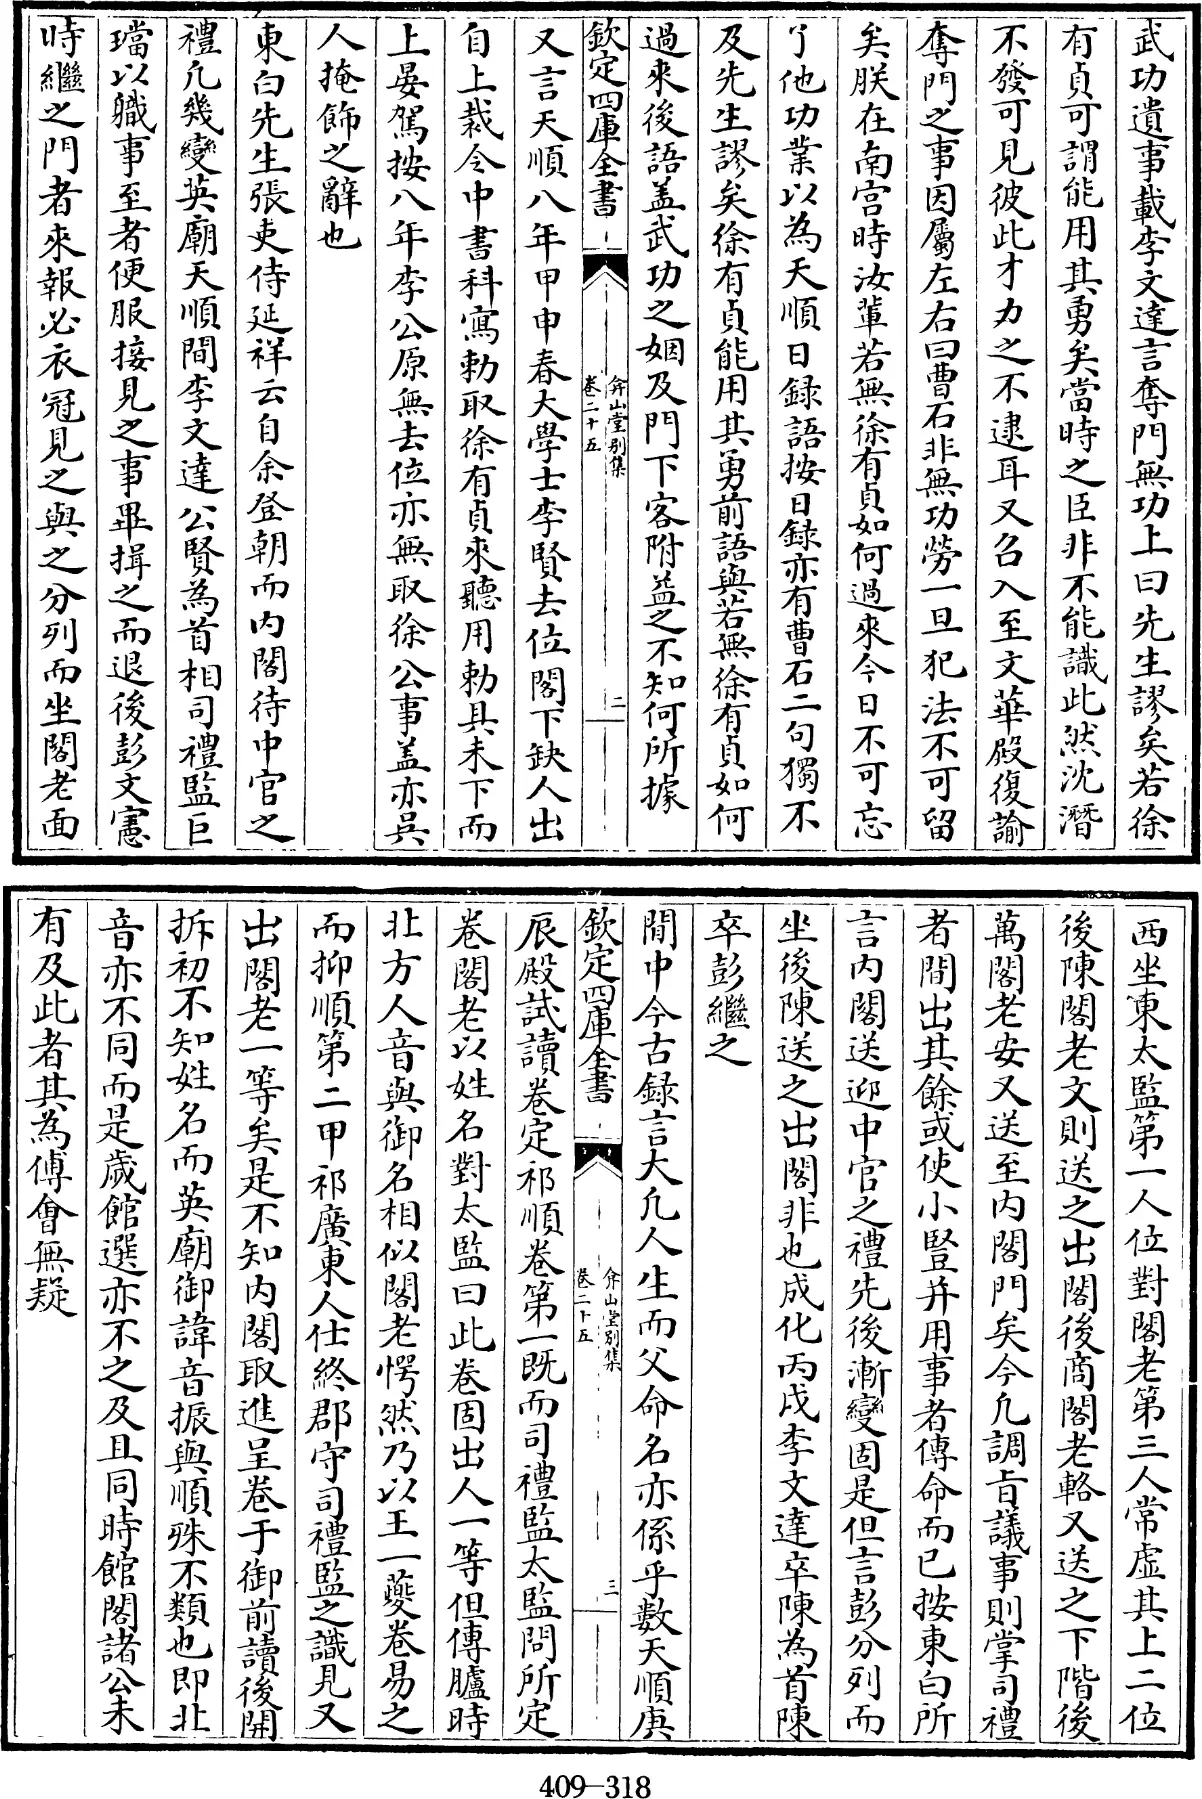 武功遺事載李文達言奪門無功上曰先生謬矣若徐
有貞可謂能用其勇矣當時之臣非不能識此然沈潛
不發可見彼此才力之不逮耳又召入至文華殿復諭
奪門之事因屬左右曰曹石非無功勞一旦犯法不可留
矣朕在南宫時汝輩若無徐有貞如何過來今日不可忘
了他功業以為天順日録語按日録亦有曹石二句獨不
及先生謬矣徐有貞能用其勇前語與若無徐有貞如何
過來後語盖武功之姻及門下客附益之不知何所據
欽定四庫全書
弇山堂别集
卷二十五
二
又言天順八年甲申春大學士李賢去位閣下缺人出
自上裁令中書科寫勅取徐有貞來聽用勅具未下而
上晏駕按八年李公原無去位亦無取徐公事盖亦吳
人掩飾之辭也
東白先生張吏侍延祥云自余登朝而内閣待中官之
禮凡幾變英廟天順間李文達公賢為首相司禮監巨
璫以職事至者便服接見之事畢揖之而退後彭文憲
時繼之門者來報必衣冠見之與之分列而坐閣老面
西坐東太監第一人位對閣老第三人常虚其上二位
後陳閣老文則送之出閣後商閣老輅又送之下階後
萬閣老安又送至内閣門矣今凡調旨議事則掌司禮
者間出其餘或使小豎并用事者傳命而已按東白所
言内閣送迎中官之禮先後漸變固是但言彭分列而
坐後陳送之出閣非也成化丙戌李文達卒陳為首陳
卒彭繼之
閒中今古録言大凡人生而父命名亦係乎數天順庚
欽定四庫全書
弇山堂别集
卷二十五
三
辰殿試讀卷定祁順卷第一既而司禮監太監問所定
卷閣老以姓名對太監曰此卷固出人一等但傳臚時
北方人音與御名相似閣老愕然乃以王一夔卷易之
而抑順第二甲祁廣東人仕終郡守司禮監之識見又
出閣老一等矣是不知内閣取進呈卷于御前讀後開
拆初不知姓名而英廟御諱音振與順殊不類也即北
音亦不同而是歲館選亦不之及且同時館閣諸公未
有及此者其為傅會無疑
409-318